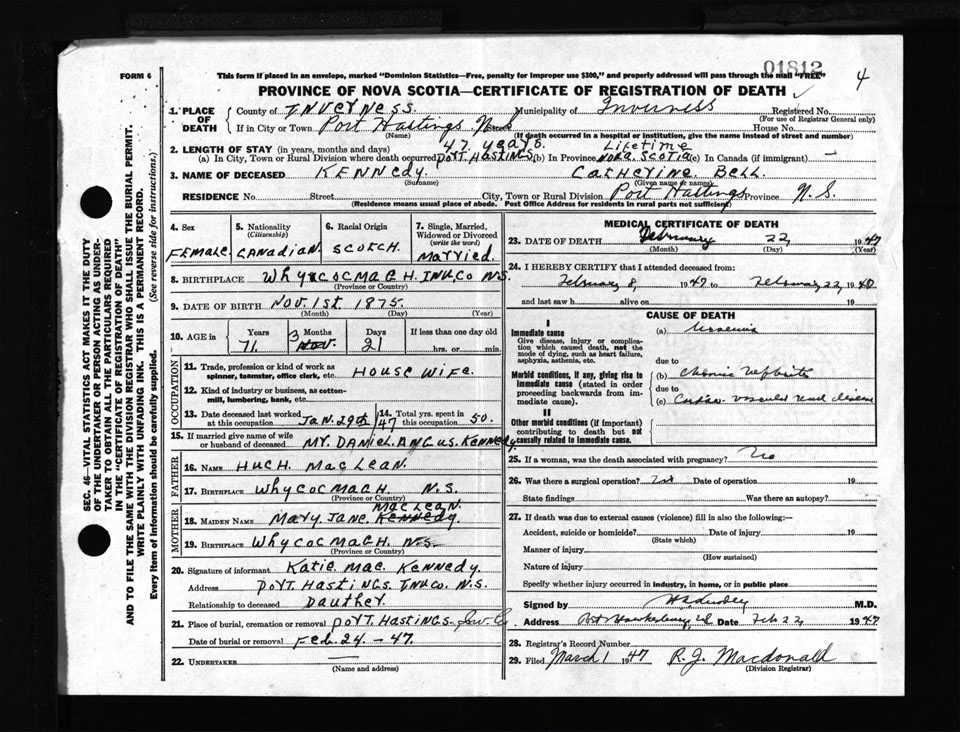 01812
4
FORM 6
This form if placed in an envelope, marked "Dominion Statistics—Free, penalty for improper use $300," and properly addressed will pass through the mail "FREE"
PROVINCE OF NOVA SCOTIA—CERTIFICATE OF REGISTRATION OF DEATH
1. PLACE OF DEATH County of INVERNESS. Municipality of Inverness Registered No.
(For use of Registrar General only)
If in City or Town Port Hastings N.S. Street House No.
(Name) (If death occurred in a hospital or institution, give the name instead of street and number)
2. LENGTH OF STAY (in years, months and days) 47. years. Lifetime
(a) In City, Town or Rural Division where death occurred PORT HASTINGS (b) In Province NOVA SCOTIA (c) In Canada (if immigrant) —
3. NAME OF DECEASED KENNEDY. CATHERINE BELL.
(Surname) (Given name or names)
RESIDENCE No. Street City, Town or Rural Division Port Hastings Province N.S.
(Residence means usual place of abode. Post Office Address for residents in rural parts not sufficient)
4. Sex 5. Nationality (Citizenship) 6. Racial Origin 7. Single, Married, Widowed or Divorced (write the word)
FEMALE. CANADIAN. SCOTCH. MARRIED.
8. BIRTHPLACE WHYCOCMAGH. INV.CO N.S.
(Province or Country)
9. DATE OF BIRTH NOV. 1ST 1875.
(Month) (Day) (Year)
10. AGE in Years Months Days If less than one day old
71. 3 NOV. 21 hrs. or min.
OCCUPATION
11. Trade, profession or kind of work as spinner, teamster, office clerk, etc. HOUSE WIFE.
12. Kind of industry or business, as cotton-mill, lumbering, bank, etc.
13. Date deceased last worked at this occupation JAN. 29th 47 14. Total yrs. spent in this occupation 50.
15. If married give name of wife or husband of deceased MR. DANIEL ANGUS. KENNEDY
FATHER
16. NAME HUGH. MACLEAN.
17. BIRTHPLACE WHYCOCMAGH. N.S.
(Province or Country)
MOTHER
MACLEAN.
18. MAIDEN NAME MARY. JANE. KENNEDY.
19. BIRTHPLACE WHYCOCMAGH. N.S.
(Province or Country)
20. Signature of informant KATIE MAE KENNEDY.
Address PORT. HASTINGS. INV.CO. N.S.
Relationship to deceased DAUTHER.
21. Place of burial, cremation or removal PORT. HASTINGS- Inv. Co
Date of burial or removal FEB. 24. - 47.
22. UNDERTAKER —
(Name and address)
MEDICAL CERTIFICATE OF DEATH
23. DATE OF DEATH February 22, 1947
(Month) (Day) (Year)
24. I HEREBY CERTIFY that I attended deceased from:
February 8, 1947 to February 22, 1947
and last saw h alive on 19
CAUSE OF DEATH
I
Immediate cause (a) Uraemia
Give disease, injury or complication which caused death, not the mode of dying, such as heart failure, asphyxia, asthenia, etc.
due to
Morbid conditions, if any, giving rise to immediate cause (stated in order proceeding backwards from immediate cause).
(b) Chronic Nephritis
due to
(c) Cardio vascular renal disease
II
Other morbid conditions (if important) contributing to death but not causally related to immediate cause.
25. If a woman, was the death associated with pregnancy? No
26. Was there a surgical operation? Not Date of operation 19
State findings Was there an autopsy?
27. If death was due to external causes (violence) fill in also the following:—
Accident, suicide or homicide? Date of injury 19
(State which)
Manner of injury
(How sustained)
Nature of injury
Specify whether injury occurred in industry, in home, or in public place
Signed by M.D.
Address Port Hawkesbury, N.S. Date Feb 22 1947
28. Registrar's Record Number
29. Filed March 1 1947 R. J. Macdonald
(Division Registrar)
SEC. 46—VITAL STATISTICS ACT MAKES IT THE DUTY
OF THE UNDERTAKER OR PERSON ACTING AS UNDER-
TAKER TO OBTAIN ALL THE PARTICULARS REQUIRED
IN THE "CERTIFICATE OF REGISTRATION OF DEATH"
AND TO FILE THE SAME WITH THE DIVISION REGISTRAR WHO SHALL ISSUE THE BURIAL PERMIT.
WRITE PLAINLY WITH UNFADING INK. THIS IS A PERMANENT RECORD.
Every item of information should be carefully supplied. (See reverse side for instructions.)